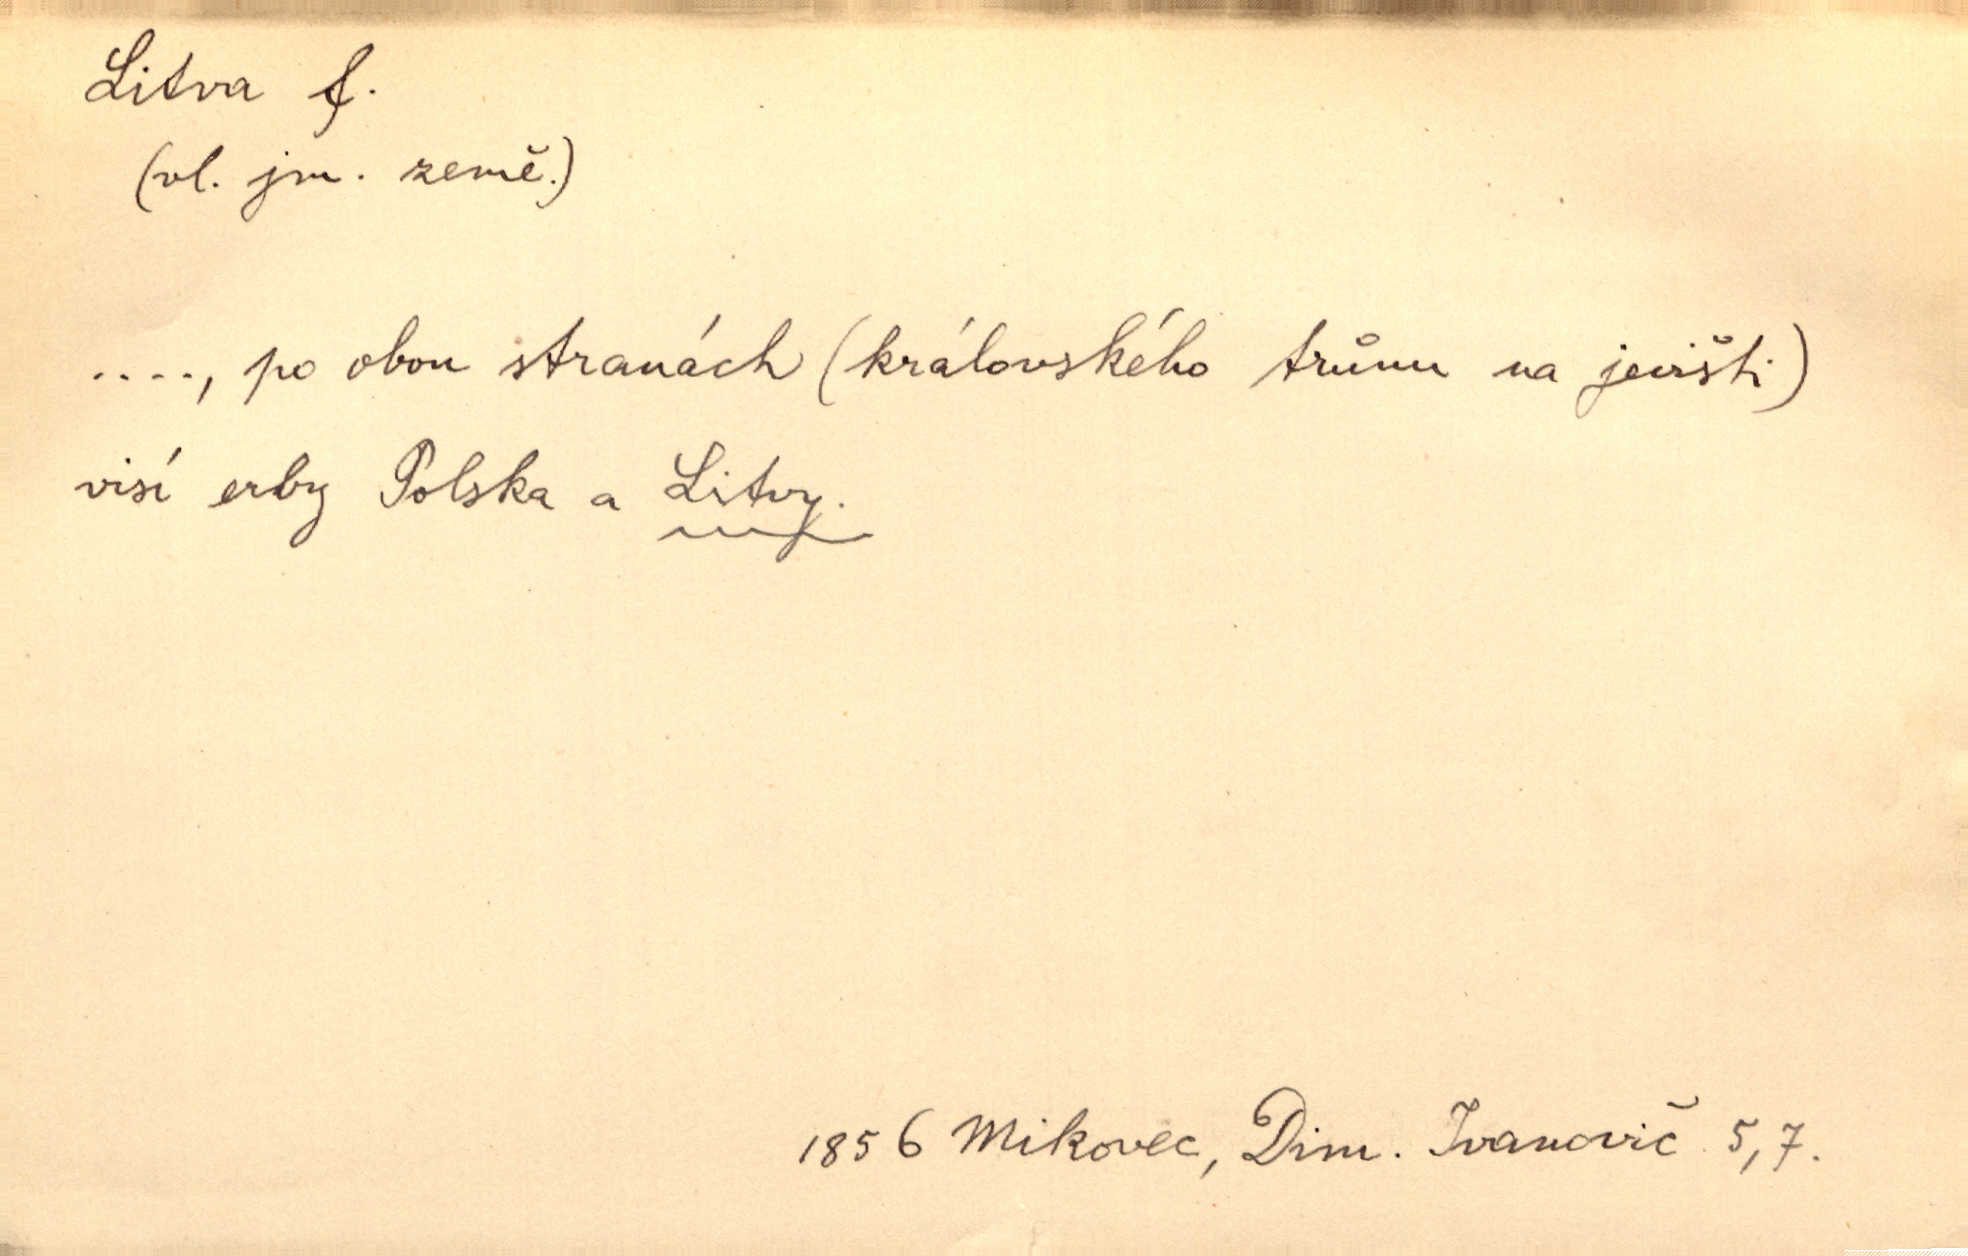 Litva f.
(vl. jm. země.)
...., po obou stranách (královského trůnu na jevišti)
visí erby Polska a Litvy.
1856 Mikovec, Dim. Ivanovič 5,7.